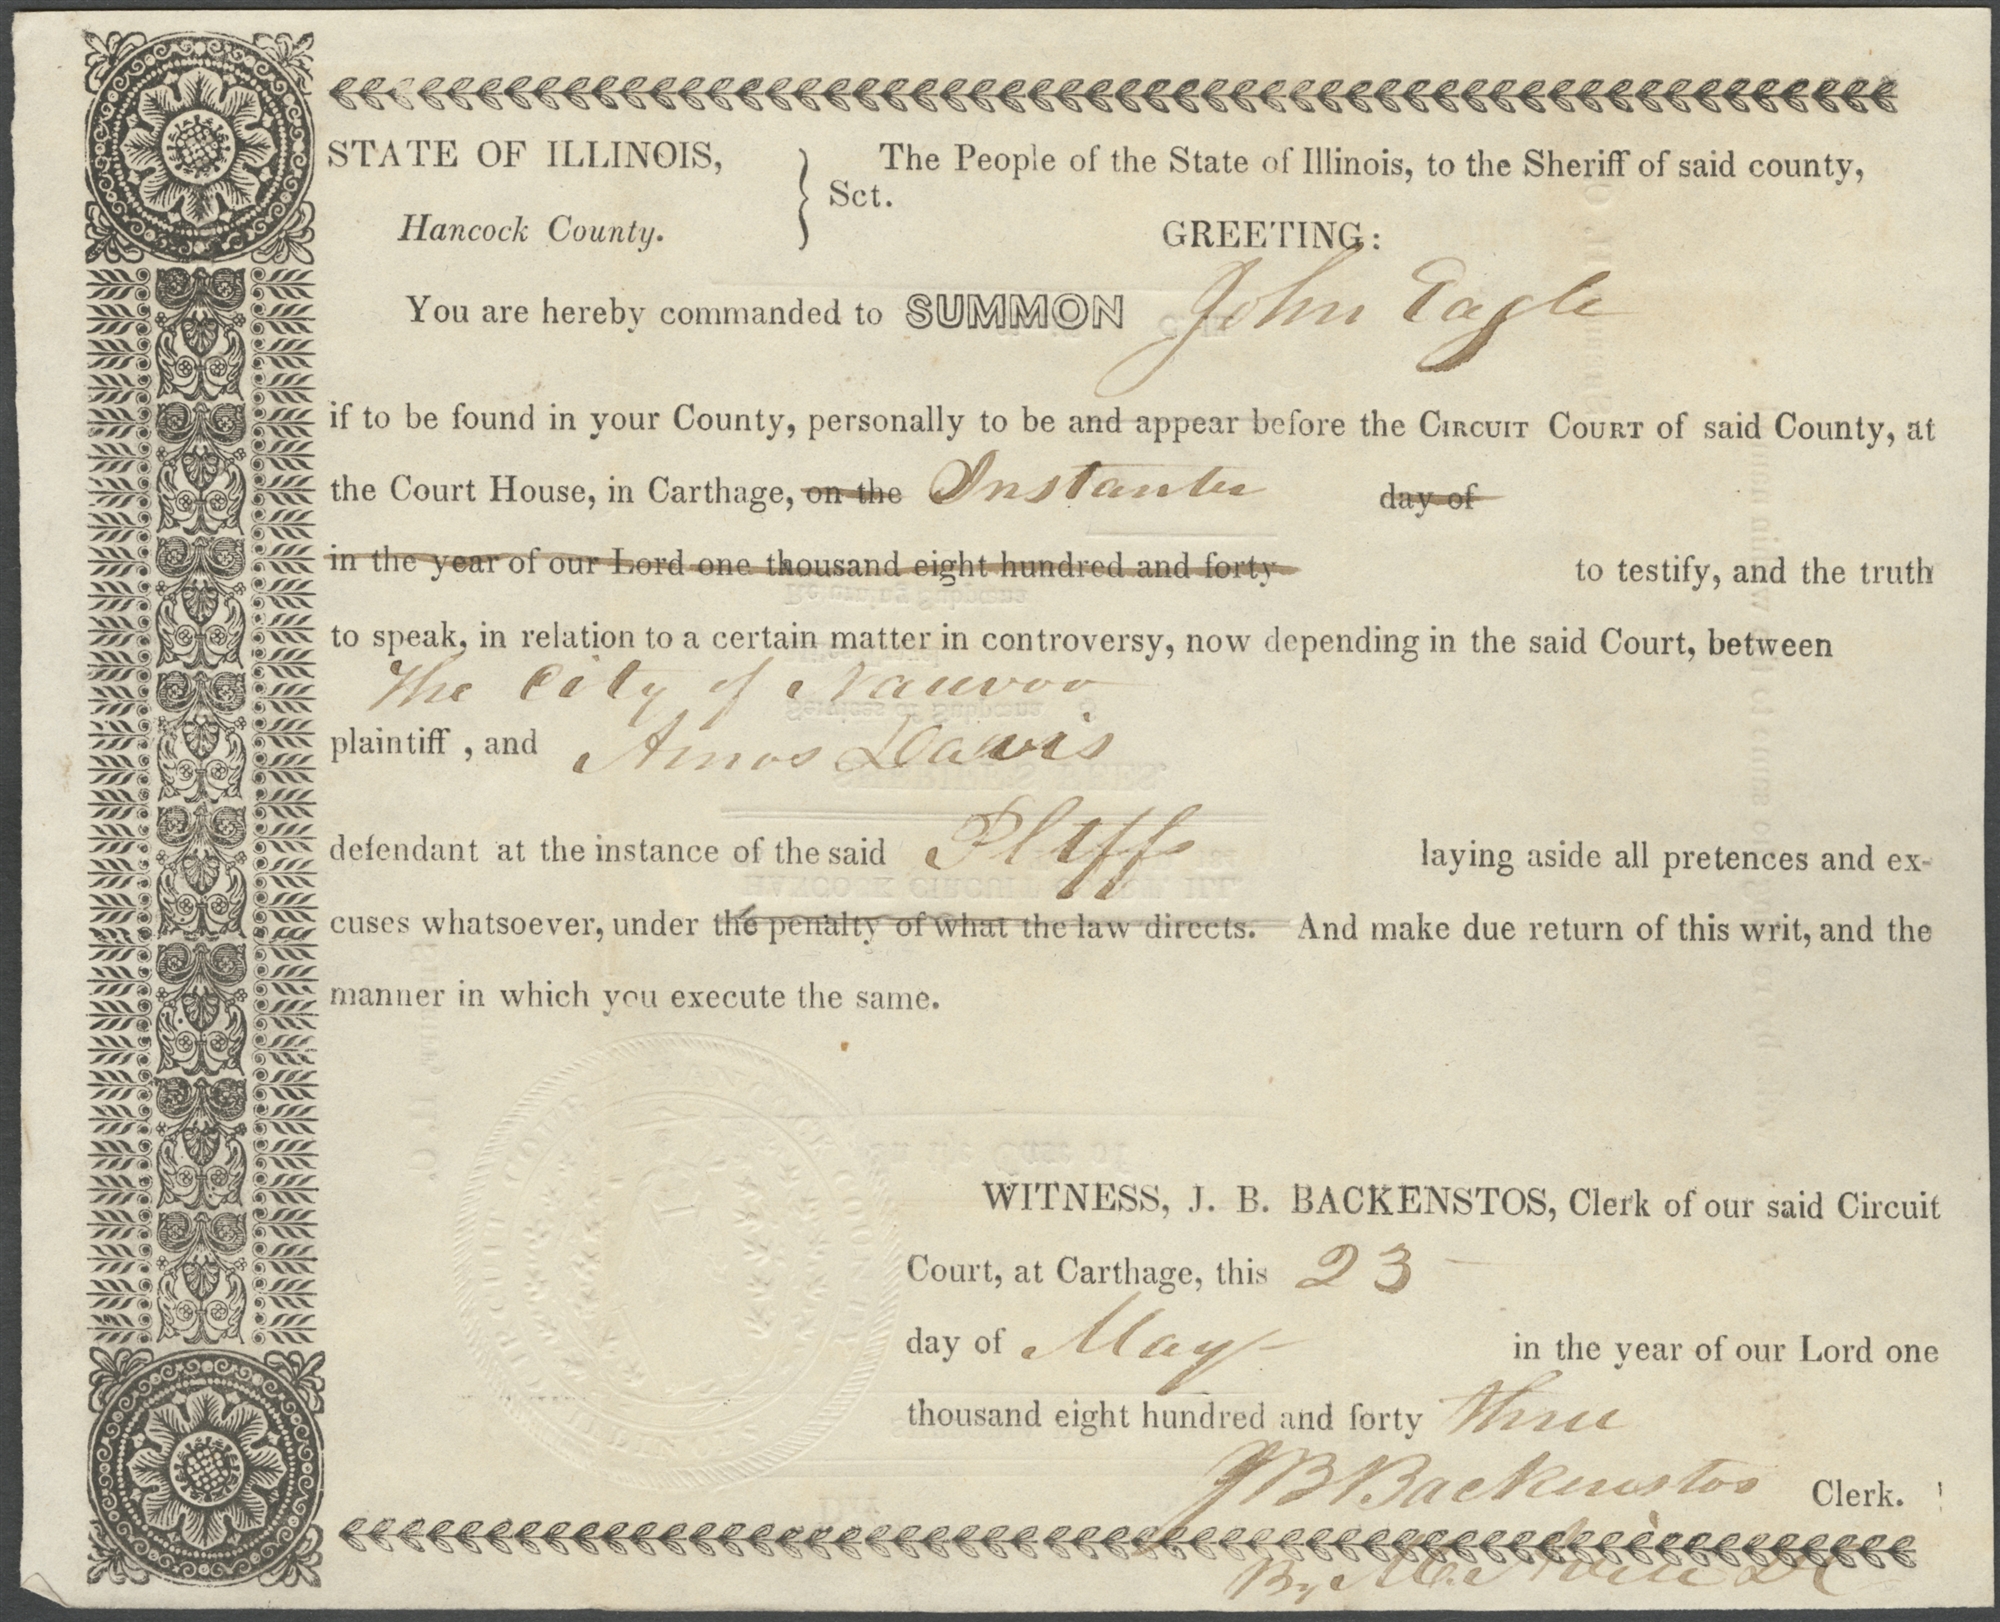 STATE OF ILLINOIS,
Hancock County.
Sct.
The People of the State of Illinois, to the Sheriff of said county,
GREETING:
You are hereby commanded to SUMMON John Eagle
if to be found in your County, personally to be and appear before the CIRCUIT COURT of said County, at
the Court House, in Carthage, on the Instanter day of
in the year of our Lord one thousand eight hundred and forty to testify, and the truth
to speak, in relation to a certain matter in controversy, now depending in the said Court, between
The City of Nauvoo
plaintiff , and Amos Davis
defendant at the instance of the said Plffs laying aside all pretences and ex-
cuses whatsoever, under the penalty of what the law directs. And make due return of this writ, and the
manner in which you execute the same.
WITNESS, J. B. BACKENSTOS, Clerk of our said Circuit
Court, at Carthage, this 23
day of May in the year of our Lord one
thousand eight hundred and forty three
J B Backenstos Clerk.
By
HANCOCK COUNTY
CIRCUIT COURT
ILLINOIS